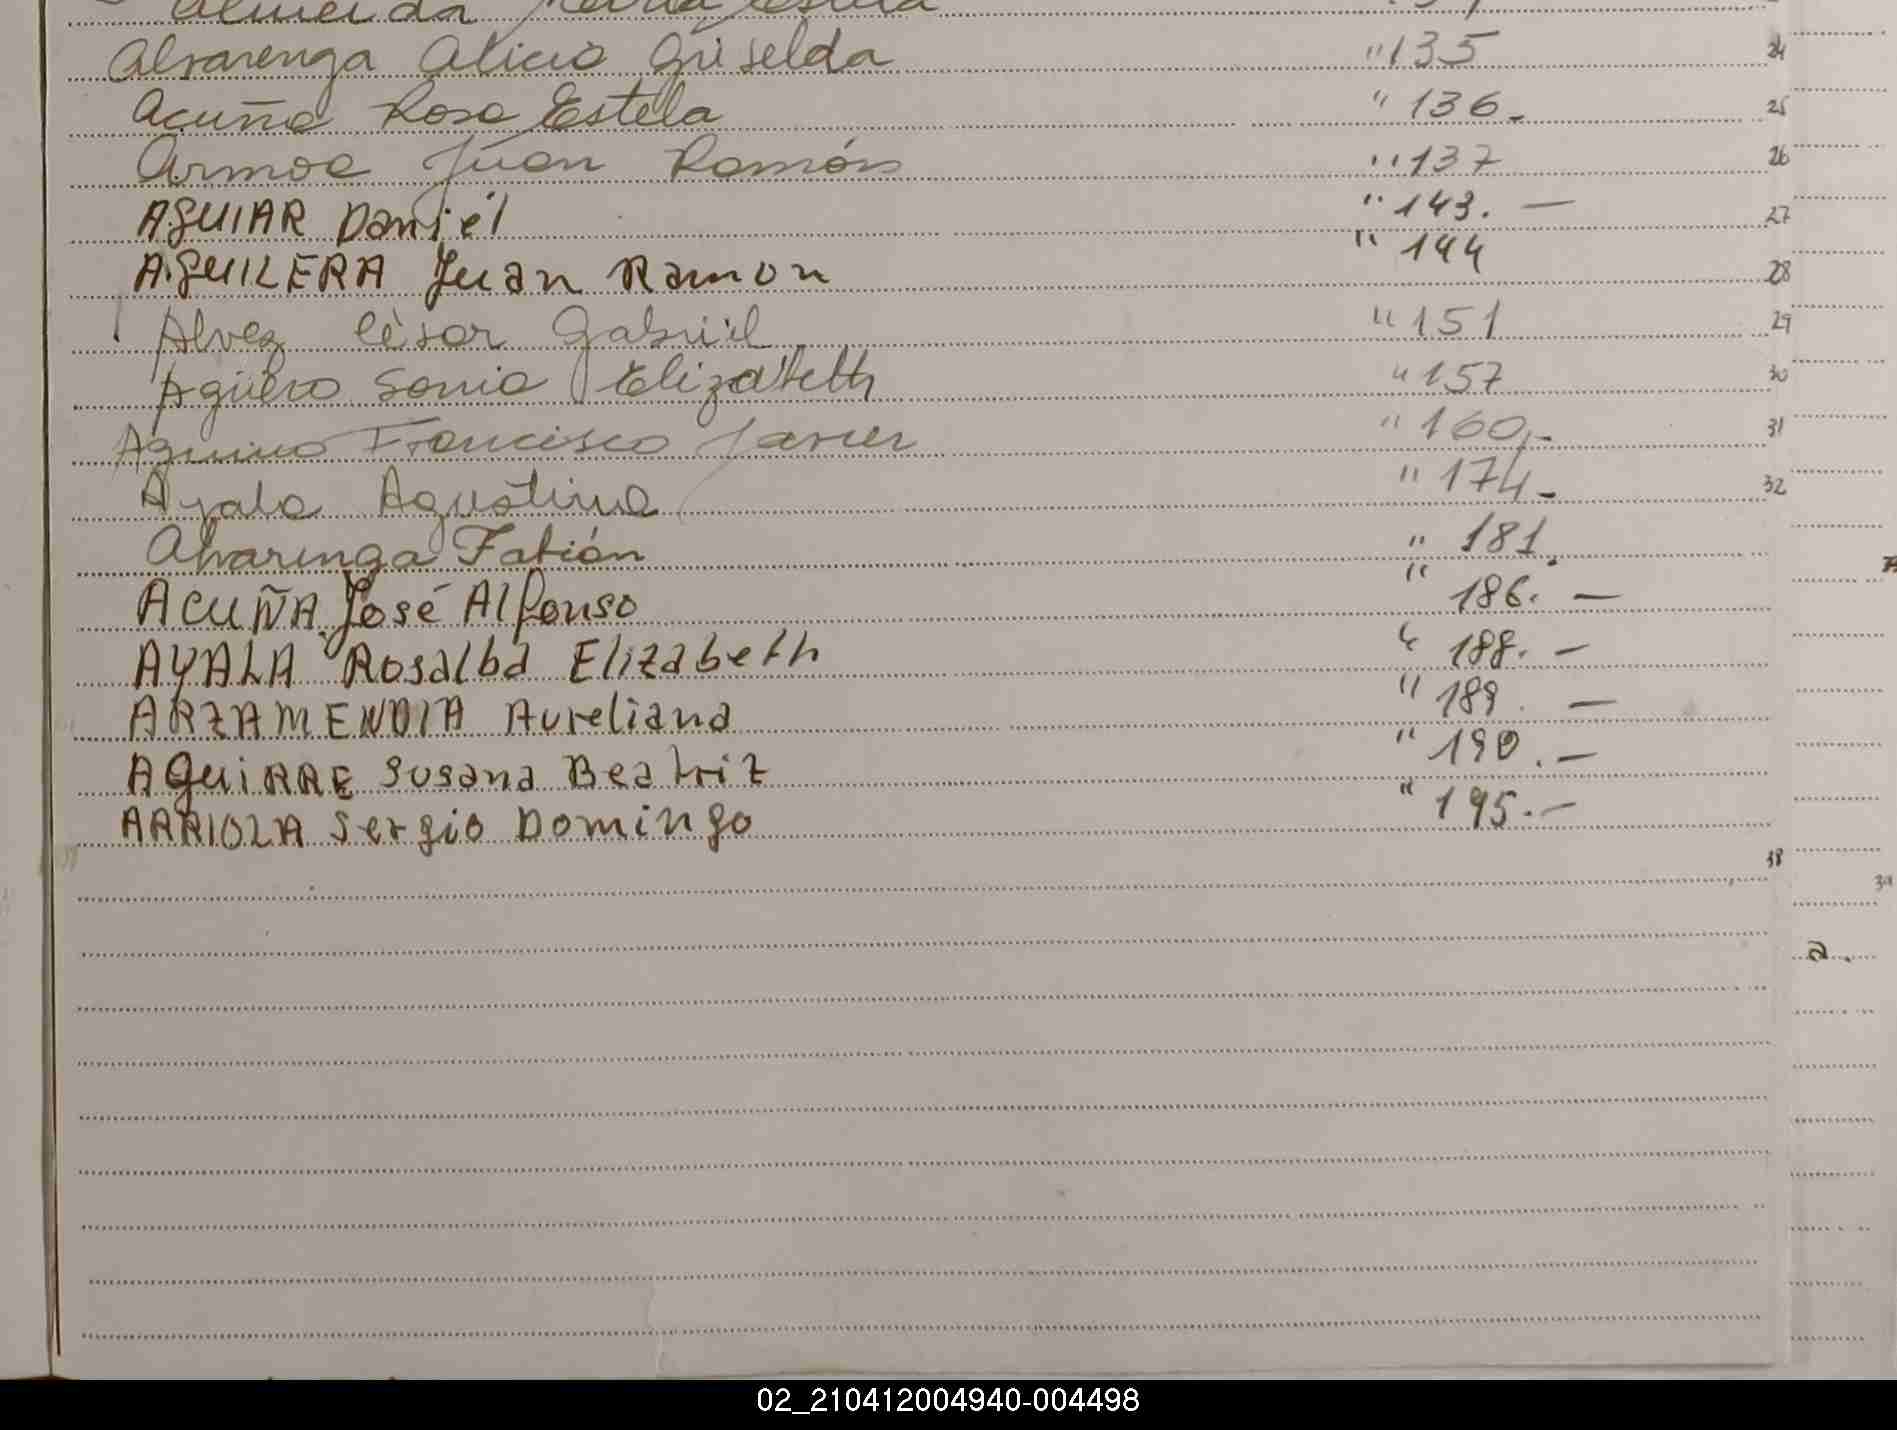 Almeida María Estela
Alvarenga Alicia Griselda " 135 24
Acuña Rosa Estela " 136.- 25
Armoa Juan Ramón " 137 26
AGUIAR Daniel " 143. — 27
AGUILERA Juan Ramon " 144 28
Alvez César Gabriel " 151 29
Agüero Sonia Elizabeth " 157 30
Aquino Francisco Javier " 160.- 31
Ayala Agustina " 174.- 32
Alvarenga Fabián " 181.
ACUÑA José Alfonso " 186. —
AYALA Rosalba Elizabeth " 188. —
ARZAMENDIA Aureliana " 189. —
AGUIRRE Susana Beatriz " 190. —
ARRIOLA Sergio Domingo " 195. —
38
39
a.
02_210412004940-004498